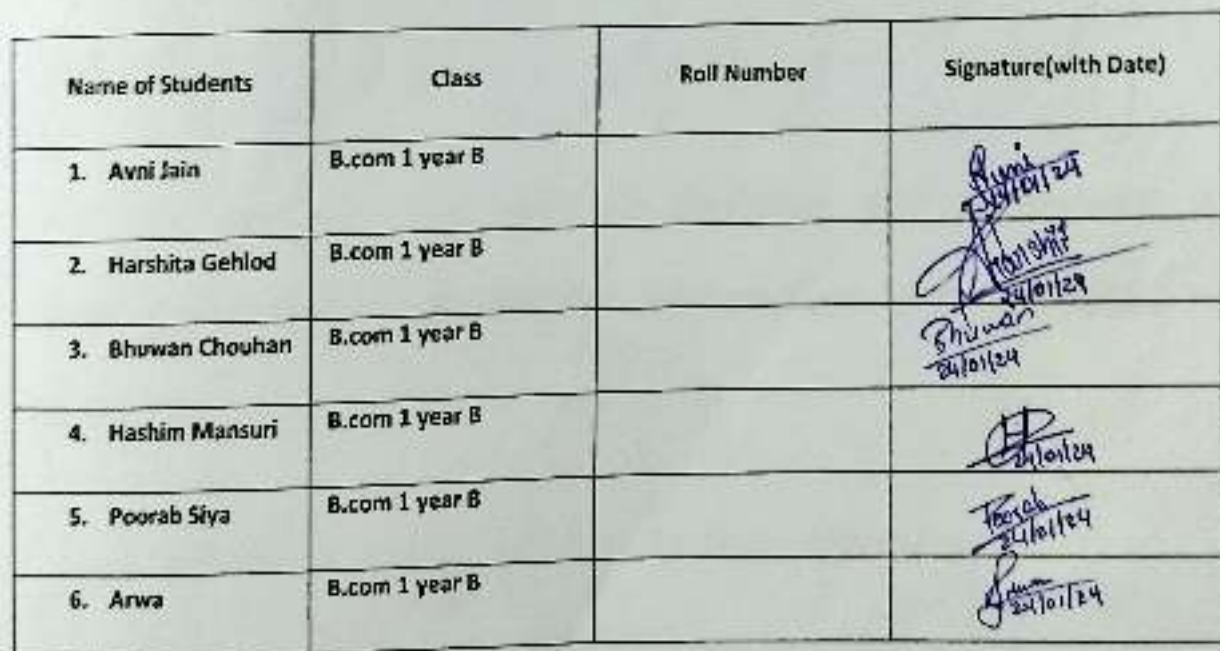 Name of Students Class Roll Number Signature(with Date)
1. Avni Jain B.com 1 year B Avni
24/01/24
2. Harshita Gehlod B.com 1 year B
24/01/24
3. Bhuwan Chouhan B.com 1 year B Bhuwan
24/01/24
4. Hashim Mansuri B.com 1 year B
24/01/24
5. Poorab Siya B.com 1 year B Poorab
24/01/24
6. Arwa B.com 1 year B
24/01/24